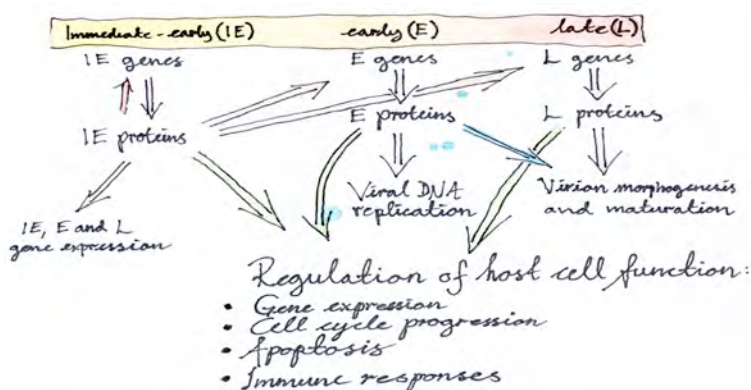 Immediate-early (IE) early (E) late (L)
IE genes E genes L genes
IE proteins E proteins L proteins
IE, E and L
gene expression
Viral DNA
replication
Virion morphogenesis
and maturation
Regulation of host cell function:
• Gene expression
• Cell cycle progression
• Apoptosis
• Immune responses